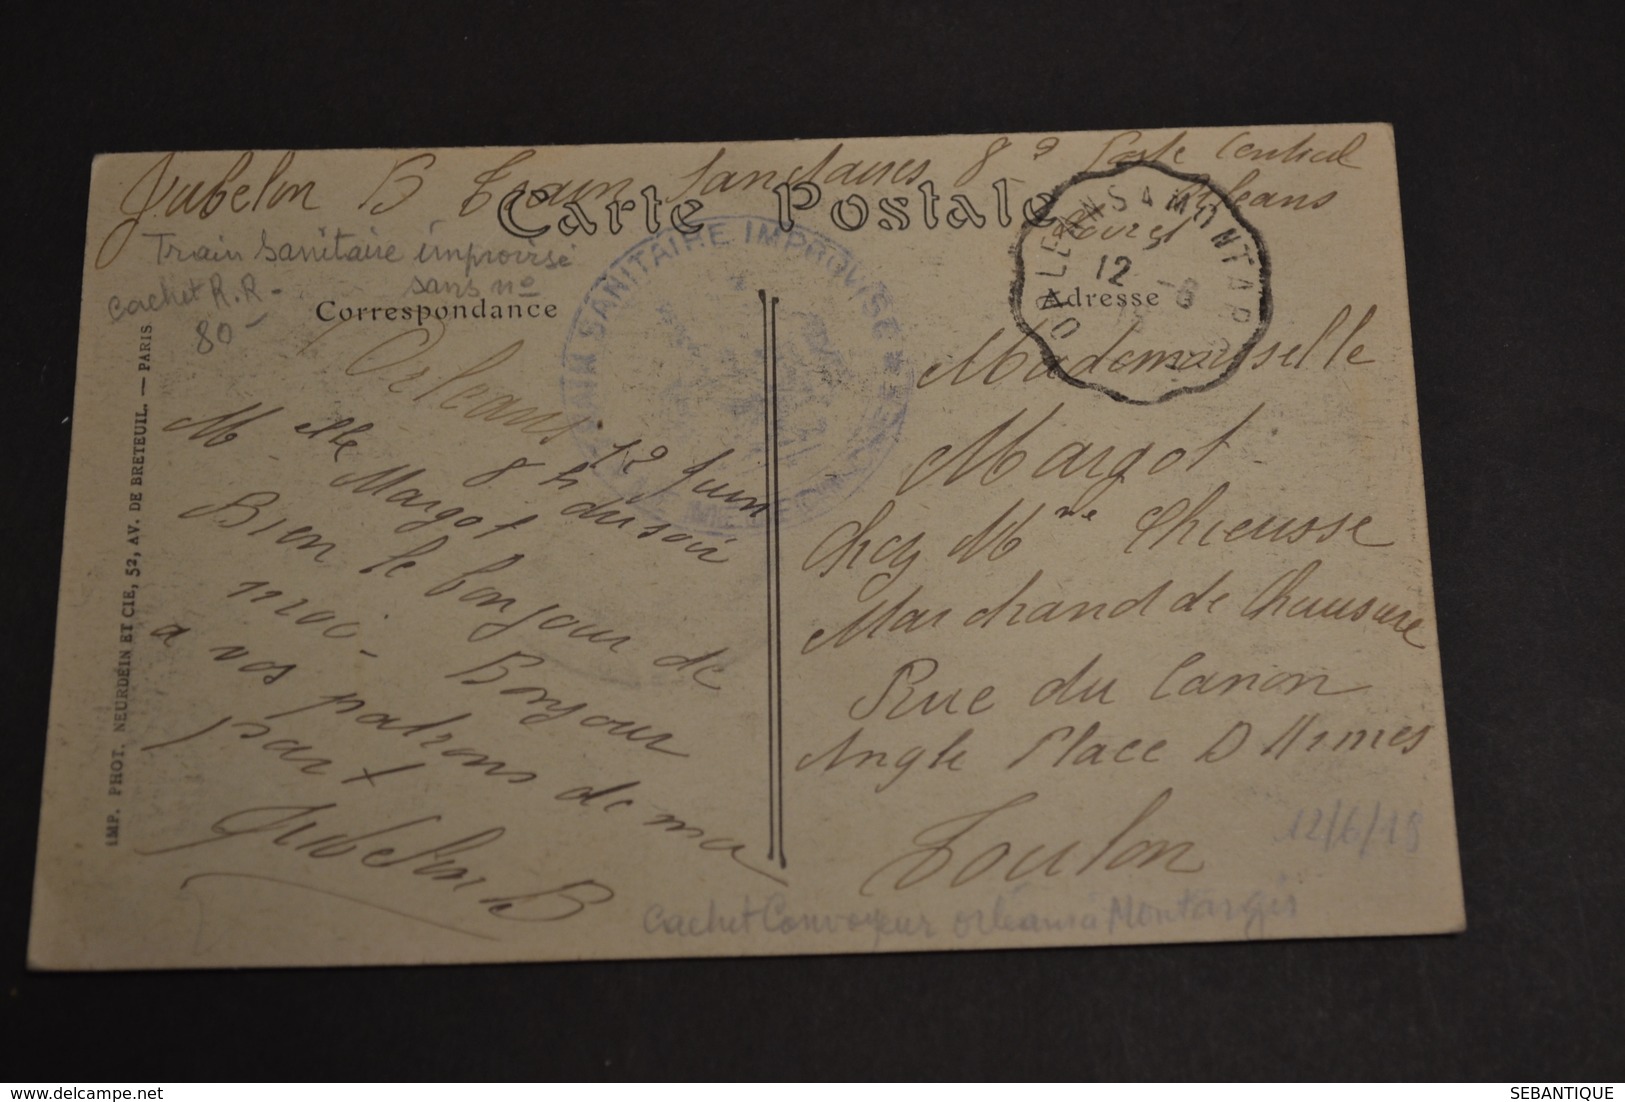 Jubelon B Train Sanitaires 8 d Poste Central
Orléans
Loiret
Carte Postale
Train Sanitaire improvisé
sans no
cachet R.R-
80-
Correspondance
Adresse
TRAIN SANITAIRE IMPROVISÉ
ORLEANS A MONTARGIS
12 -6
15
Orleans 12 Juin
8 h du soir
Melle Margot
Bien le bonjour de
moi- Bonjour
a vos patrons de ma
part
Jubelon B
Mademouselle
Margot
Chez Mme Chieusse
Marchand de Chausure
Rue du Canon
Angle Place D Armes
Toulon
12/6/15
Cachet Convoyeur Orléans à Montargis
IMP. PHOT. NEURDEIN ET CIE, 52, AV. DE BRETEUIL. — PARIS
SEBANTIQUE